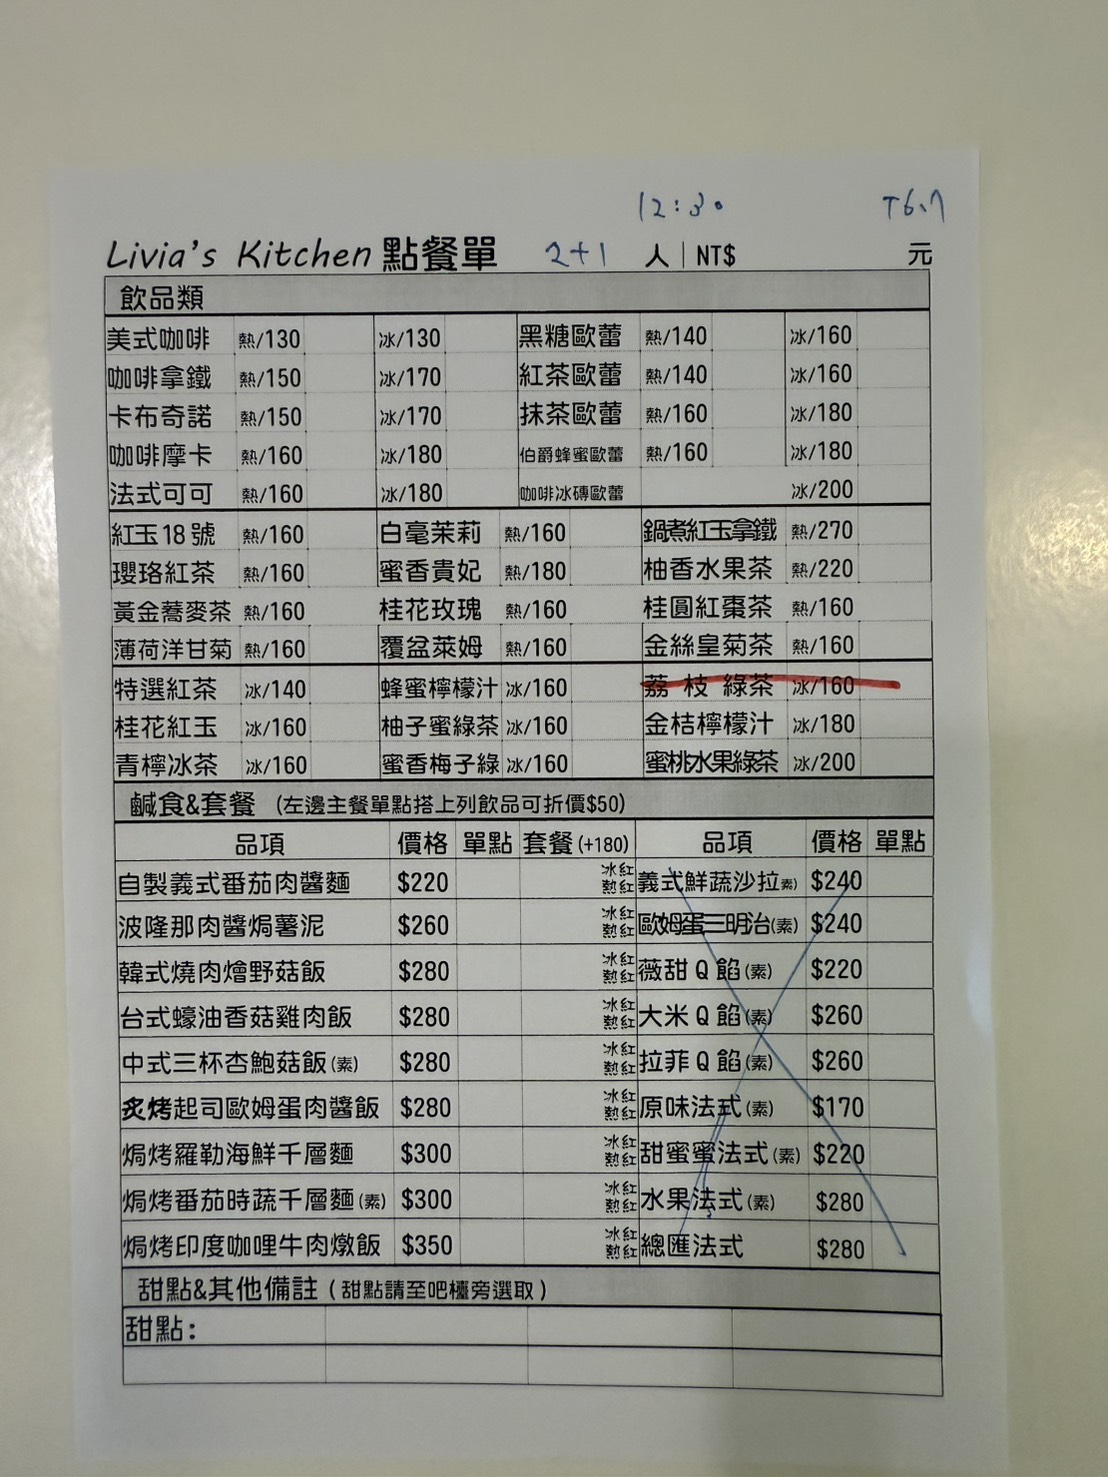 12:30 T6、7
Livia's Kitchen 點餐單 2+1 人 | NT$ 元
飲品類
美式咖啡 熱/130 冰/130 黑糖歐蕾 熱/140 冰/160
咖啡拿鐵 熱/150 冰/170 紅茶歐蕾 熱/140 冰/160
卡布奇諾 熱/150 冰/170 抹茶歐蕾 熱/160 冰/180
咖啡摩卡 熱/160 冰/180 伯爵蜂蜜歐蕾 熱/160 冰/180
法式可可 熱/160 冰/180 咖啡冰磚歐蕾 冰/200
紅玉18號 熱/160 白毫茉莉 熱/160 鍋煮紅玉拿鐵 熱/270
瓔珞紅茶 熱/160 蜜香貴妃 熱/180 柚香水果茶 熱/220
黃金蕎麥茶 熱/160 桂花玫瑰 熱/160 桂圓紅棗茶 熱/160
薄荷洋甘菊 熱/160 覆盆萊姆 熱/160 金絲皇菊茶 熱/160
特選紅茶 冰/140 蜂蜜檸檬汁 冰/160 荔枝綠茶 冰/160
桂花紅玉 冰/160 柚子蜜綠茶 冰/160 金桔檸檬汁 冰/180
青檸冰茶 冰/160 蜜香梅子綠 冰/160 蜜桃水果綠茶 冰/200
鹹食&套餐 (左邊主餐單點搭上列飲品可折價$50)
品項 價格 單點 套餐(+180) 品項 價格 單點
自製義式番茄肉醬麵 $220 冰紅 熱紅 義式鮮蔬沙拉素) $240
波隆那肉醬焗薯泥 $260 冰紅 熱紅 歐姆蛋三明治(素) $240
韓式燒肉燴野菇飯 $280 冰紅 熱紅 薇甜Q餡(素) $220
台式蠔油香菇雞肉飯 $280 冰紅 熱紅 大米Q餡(素) $260
中式三杯杏鮑菇飯(素) $280 冰紅 熱紅 拉菲Q餡(素) $260
炙烤起司歐姆蛋肉醬飯 $280 冰紅 熱紅 原味法式(素) $170
焗烤羅勒海鮮千層麵 $300 冰紅 熱紅 甜蜜蜜法式(素) $220
焗烤番茄時蔬千層麵(素) $300 冰紅 熱紅 水果法式(素) $280
焗烤印度咖哩牛肉燉飯 $350 冰紅 熱紅 總匯法式 $280
甜點&其他備註(甜點請至吧檯旁選取)
甜點: